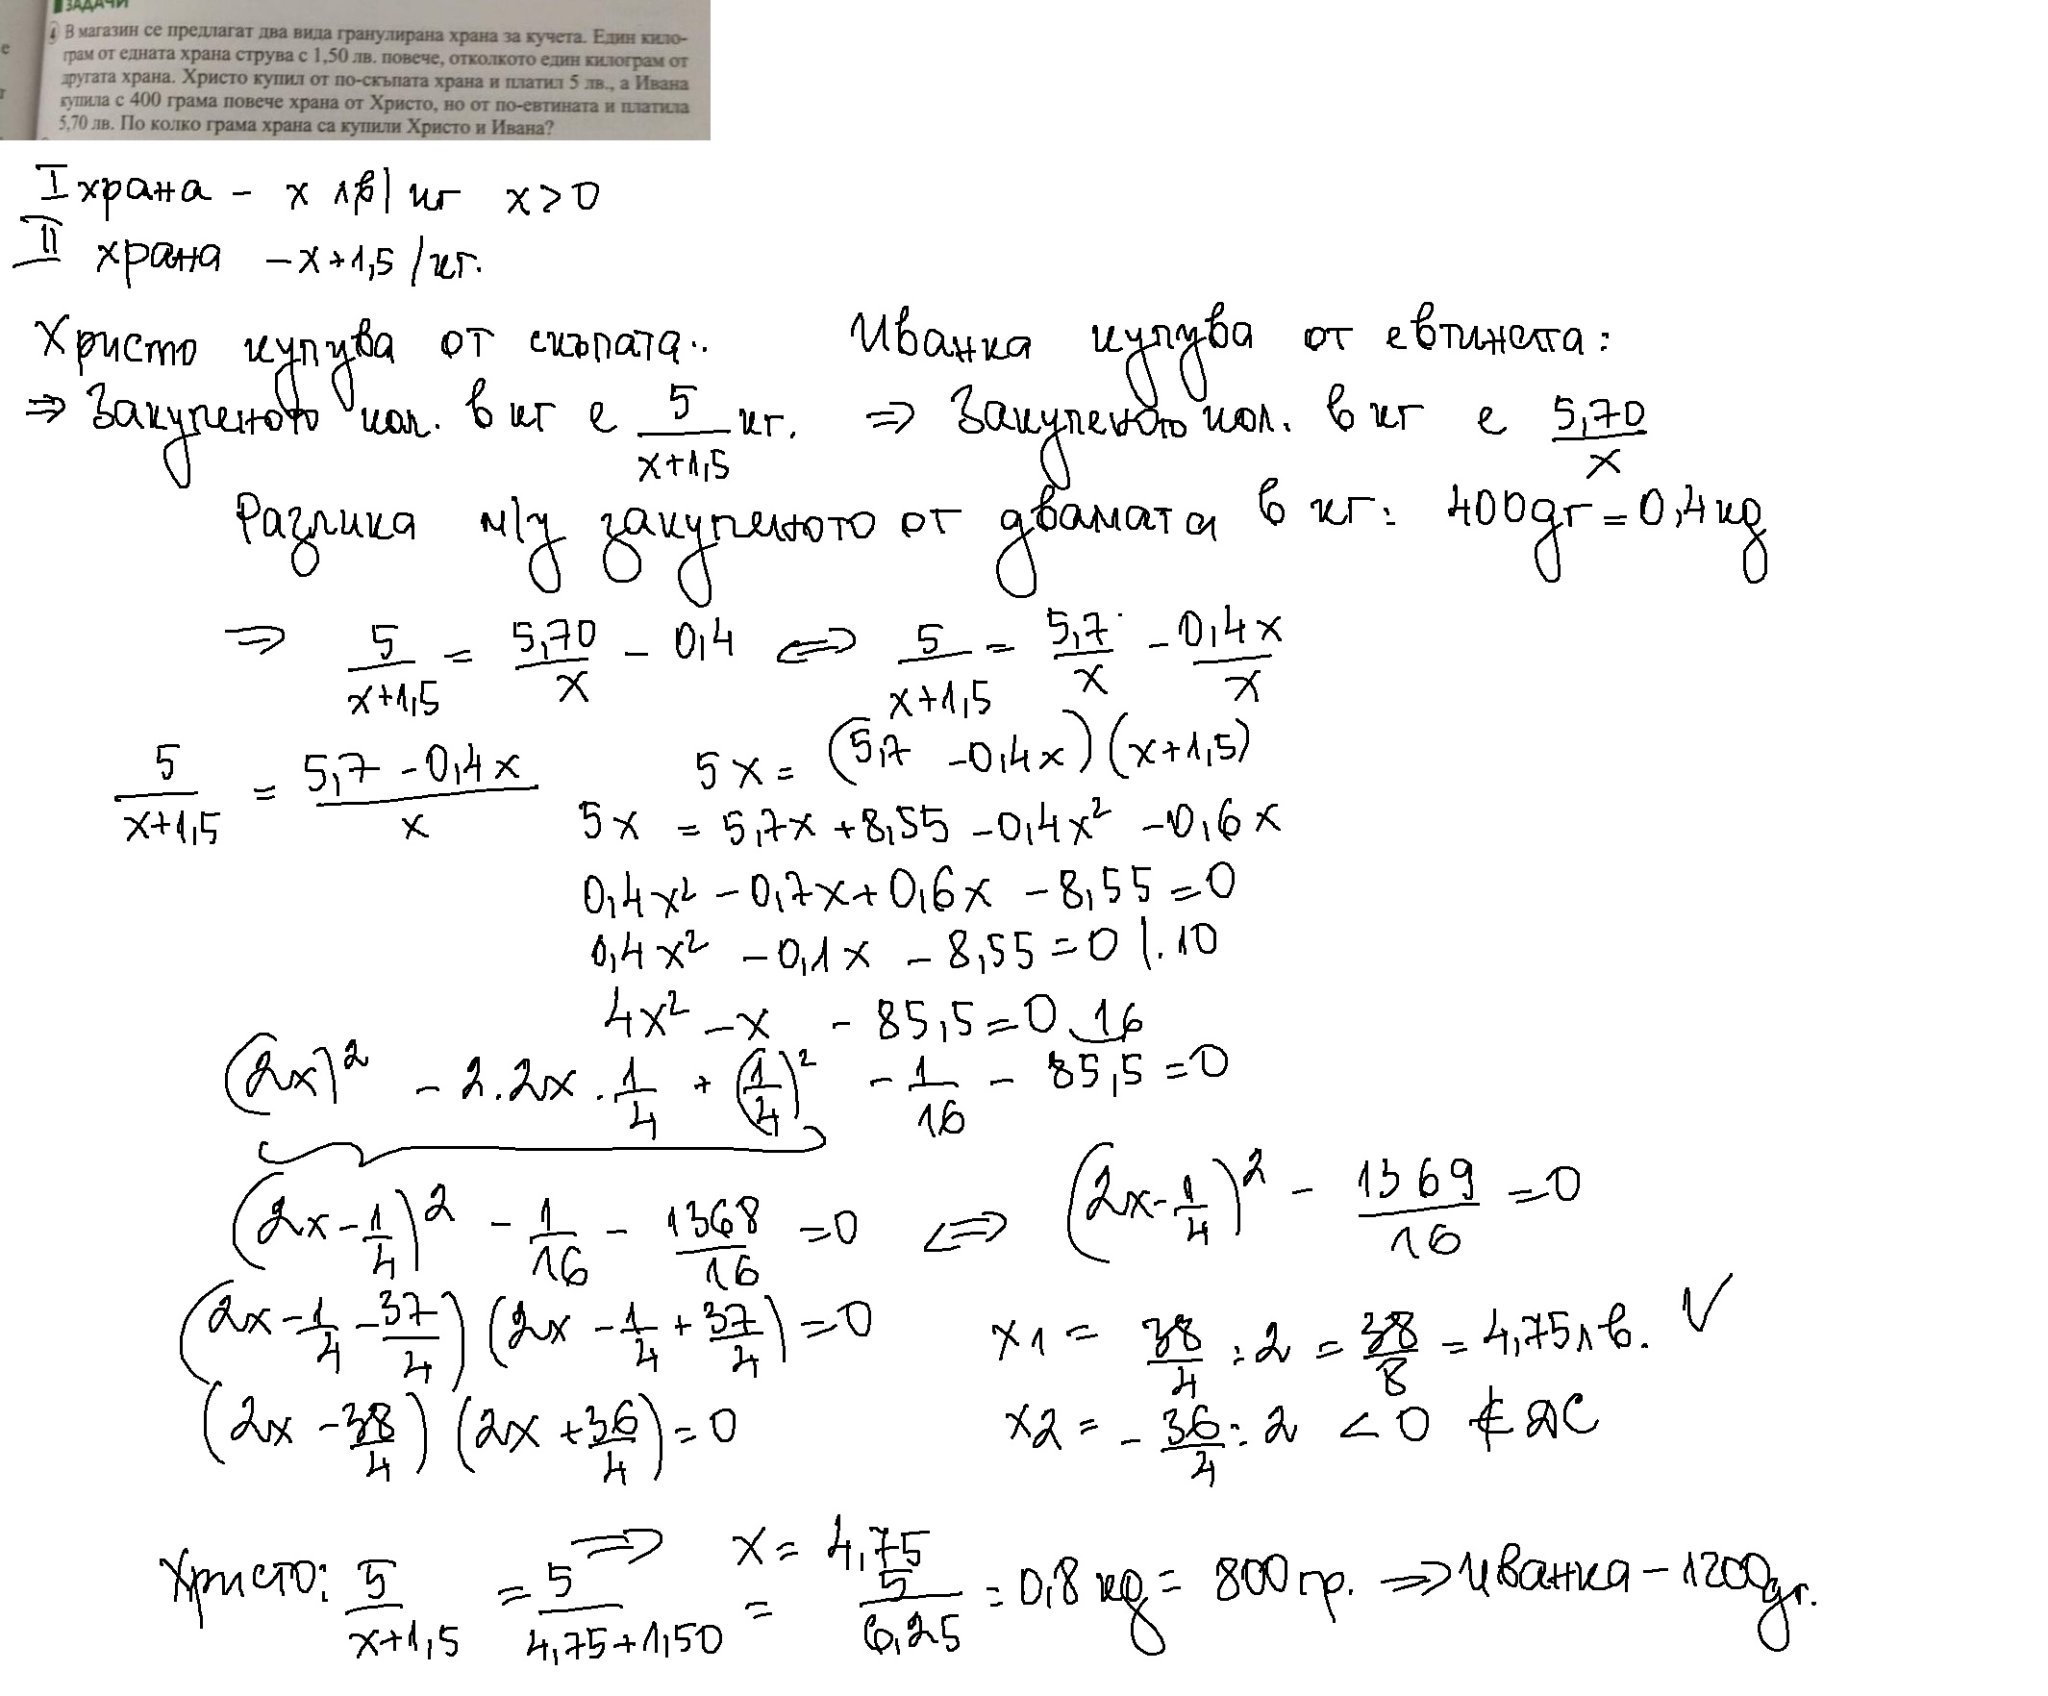 ЗАДАЧИ
В магазин се предлагат два вида гранулирана храна за кучета. Един кило-
грам от едната храна струва с 1,50 лв. повече, отколкото един килограм от
другата храна. Христо купил от по-скъпата храна и платил 5 лв., а Ивана
купила с 400 грама повече храна от Христо, но от по-евтината и платила
5,70 лв. По колко грама храна са купили Христо и Ивана?
I храна - x лв/кг x>0
II храна - x+1,5 /кг.
Христо купува от скъпата.. Иванка купува от евтината:
⇒ Закупеното кол. в кг е 5/(x+1,5) кг. ⇒ Закупеното кол. в кг е 5,70/x
Разлика м/у закупеното от двамата в кг: 400gr = 0,4kg
⇒ 5/(x+1,5) = 5,70/x - 0,4 ⇔ 5/(x+1,5) = 5,7/x - 0,4x/x
5/(x+1,5) = (5,7-0,4x)/x 5x = (5,7 -0,4x)(x+1,5)
5x = 5,7x +8,55 -0,4x² -0,6x
0,4x² -0,7x+0,6x -8,55=0
0,4x² -0,1x -8,55=0 |.10
4x² -x - 85,5=0 16
(2x)² - 2.2x.1/4 + (1/4)² - 1/16 - 85,5=0
(2x-1/4)² - 1/16 - 1368/16 =0 ⇔ (2x-1/4)² - 1369/16 =0
(2x-1/4-37/4)(2x-1/4+37/4)=0 x1= 38/4 :2 = 38/8 = 4,75лв. ✓
(2x-38/4)(2x+36/4)=0 x2= -36/4 :2 <0 ∉ ДС
⇒ x= 4,75
Христо: 5/(x+1,5) = 5/(4,75+1,50) = 5/6,25 = 0,8 kg = 800 гр. ⇒ Иванка - 1200gr.